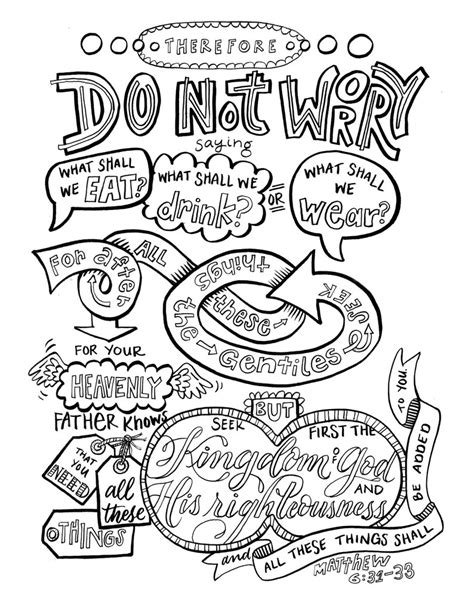 THEREFORE
DO NOT WORRY
saying
WHAT SHALL
WE EAT?
WHAT SHALL WE
drink?
OR
WHAT SHALL
WE
wear?
For after
ALL
these
things
the Gentiles
SEEK
FOR YOUR
HEAVENLY
FATHER KNOWS
THAT
YOU
NEED
all
these
THINGS
BUT
SEEK FIRST THE
Kingdom of God
AND
His righteousness
and
ALL THESE THINGS SHALL
BE ADDED
TO YOU.
MATTHEW
6:31-33